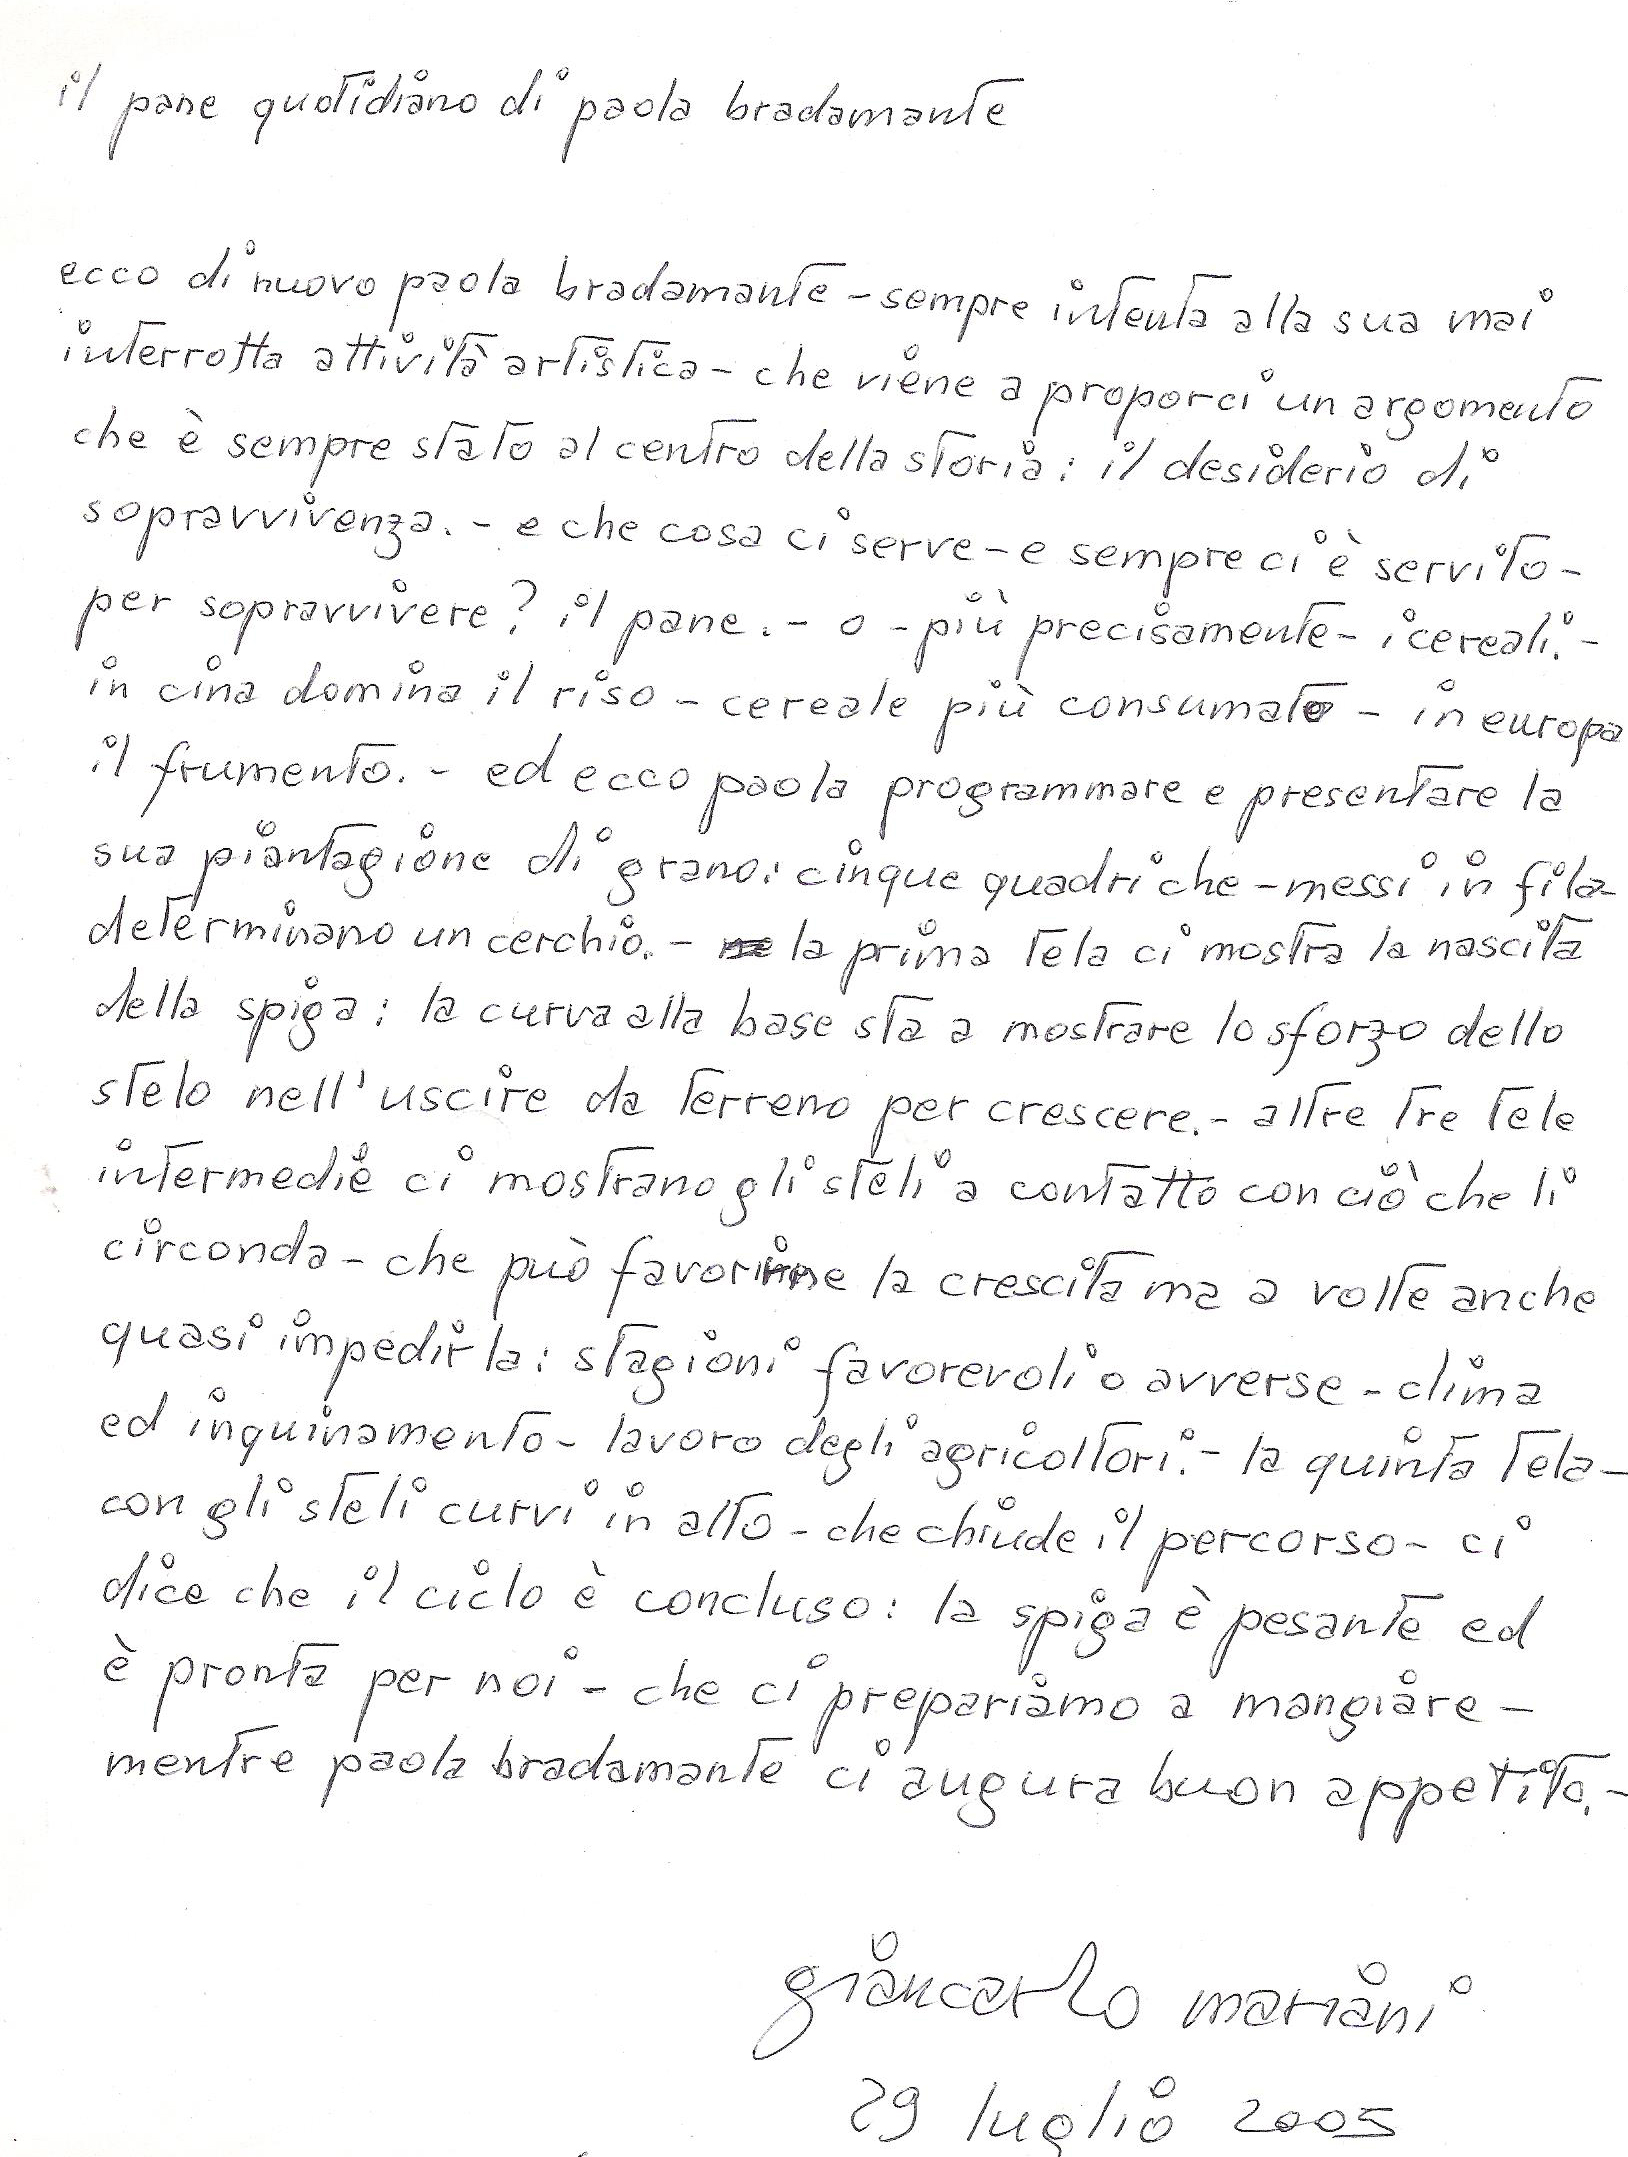 il pane quotidiano di paola bradamante
ecco di nuovo paola bradamante - sempre intenta alla sua mai
interrotta attività artistica - che viene a proporci un argomento
che è sempre stato al centro della storia : il desiderio di
sopravvivenza. - e che cosa ci serve - e sempre ci è servito -
per sopravvivere ? il pane . - o - più precisamente - i cereali. -
in cina domina il riso - cereale più consumato - in europa
il frumento. - ed ecco paola programmare e presentare la
sua piantagione di grano : cinque quadri che - messi in fila -
determinano un cerchio. - la prima tela ci mostra la nascita
della spiga : la curva alla base sta a mostrare lo sforzo dello
stelo nell'uscire da terreno per crescere. - altre tre tele
intermedie ci mostrano gli steli a contatto con ciò che li
circonda - che può favorirne la crescita ma a volte anche
quasi impedirla : stagioni favorevoli o avverse - clima
ed inquinamento - lavoro degli agricoltori. - la quinta tela -
con gli steli curvi in alto - che chiude il percorso - ci
dice che il ciclo è concluso : la spiga è pesante ed
è pronta per noi - che ci prepariamo a mangiare -
mentre paola bradamante ci augura buon appetito. -
giancarlo mariani
29 luglio 2005